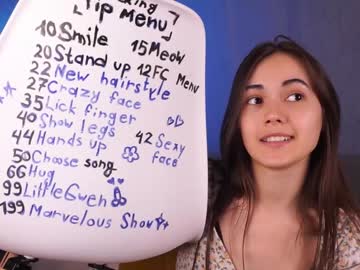 Tip Menu
10 Smile 15 Meow
20 Stand up 12 FC Menu
22 New hairstyle
27 Crazy face
35 Lick finger
40 Show legs
44 Hands up 42 Sexy face
50 Choose song
66 Hug
99 LittleGweh
199 Marvelous Show